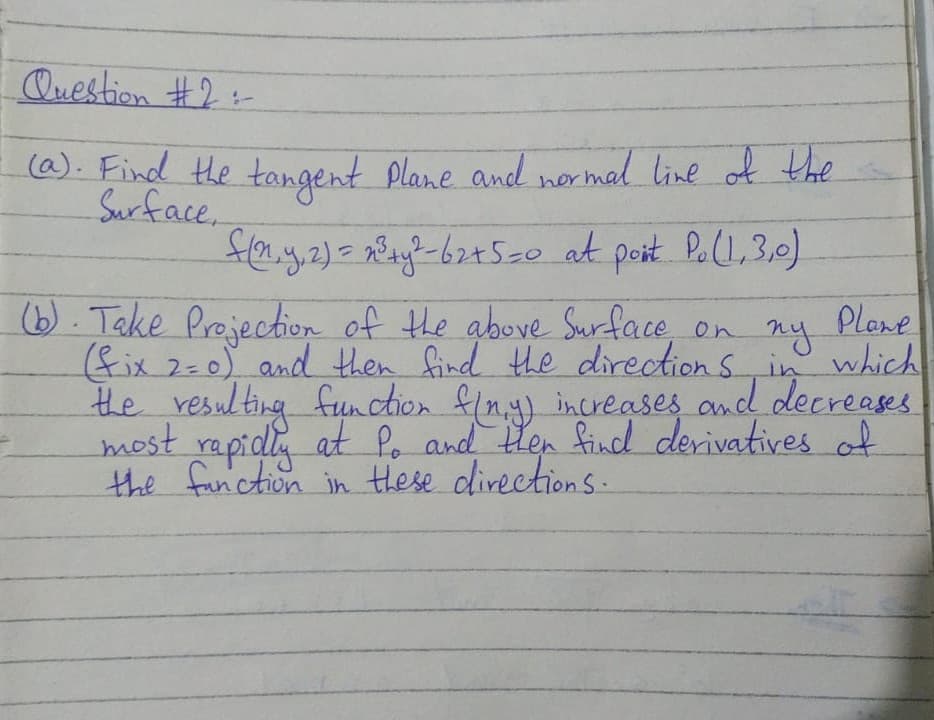 Question #2 :-
(a). Find the tangent Plane and normal line of the
Surface,
f(x,y,z) = x³+y²-6z+5=0 at poit P₀(1,3,0)
(b). Take Projection of the above Surface on xy Plane
(fix z=0) and then find the directions in which
the resulting function f(x,y) increases and decreases
most rapidly at P₀ and then find derivatives of
the function in these directions.